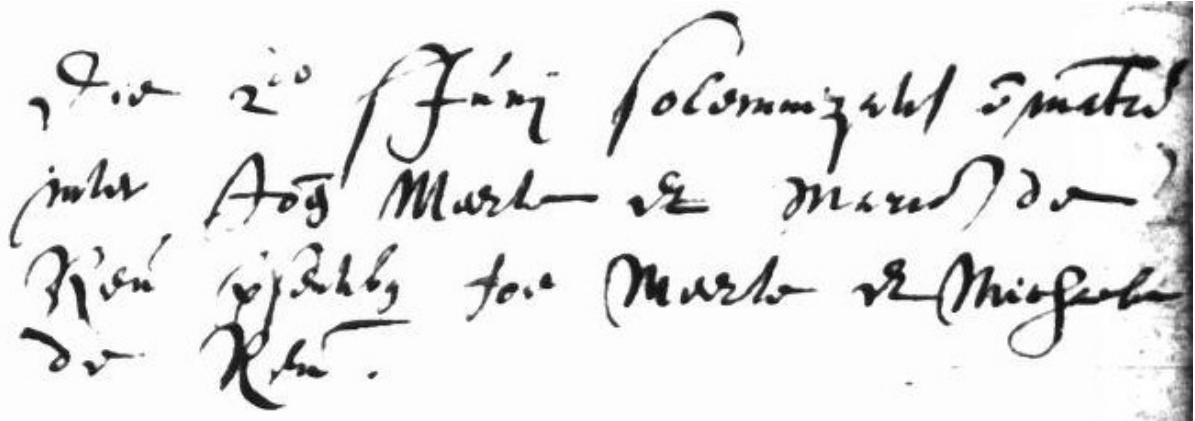 Die 2io Junij solemnizatu e matri
inter Joe Marle et Maria de
Reu psentibus Joe Marle et Michaele
de Reu.